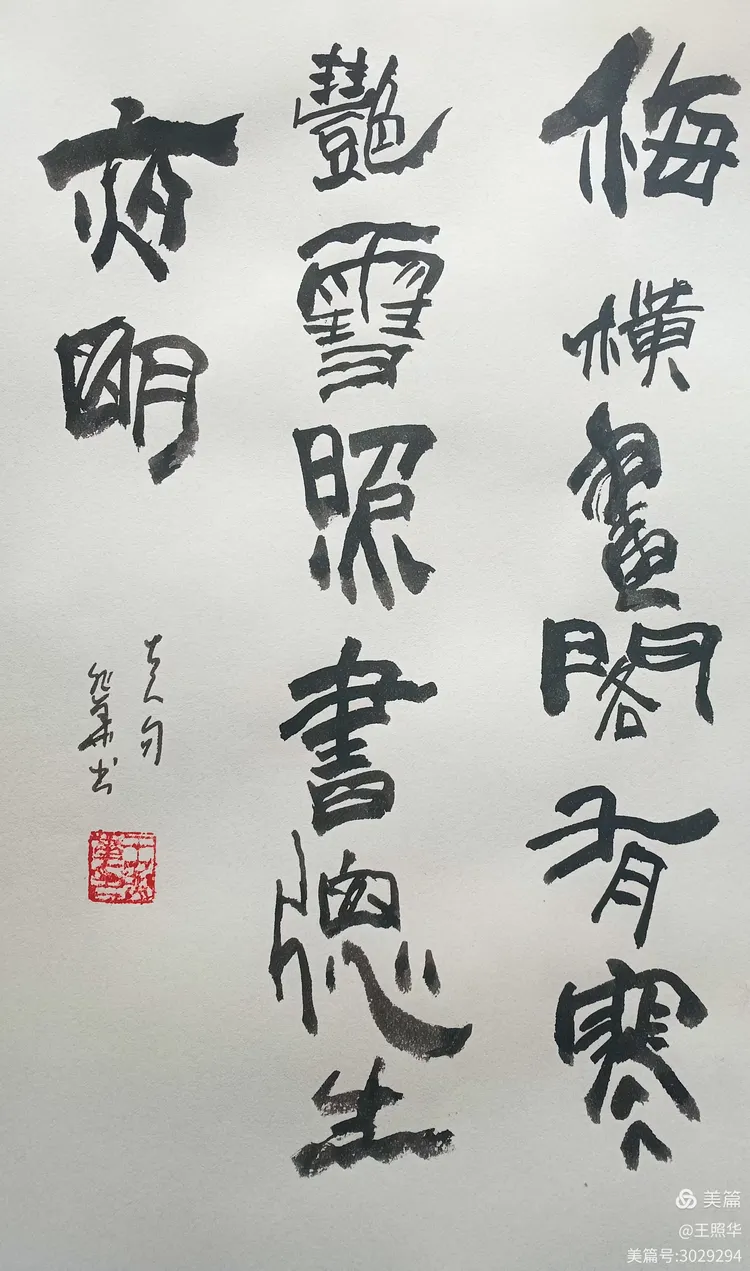 梅橫畫閣有寒
艷雪照書牕生
夜明
古人句
照華书
美篇
@王照华
美篇号:3029294